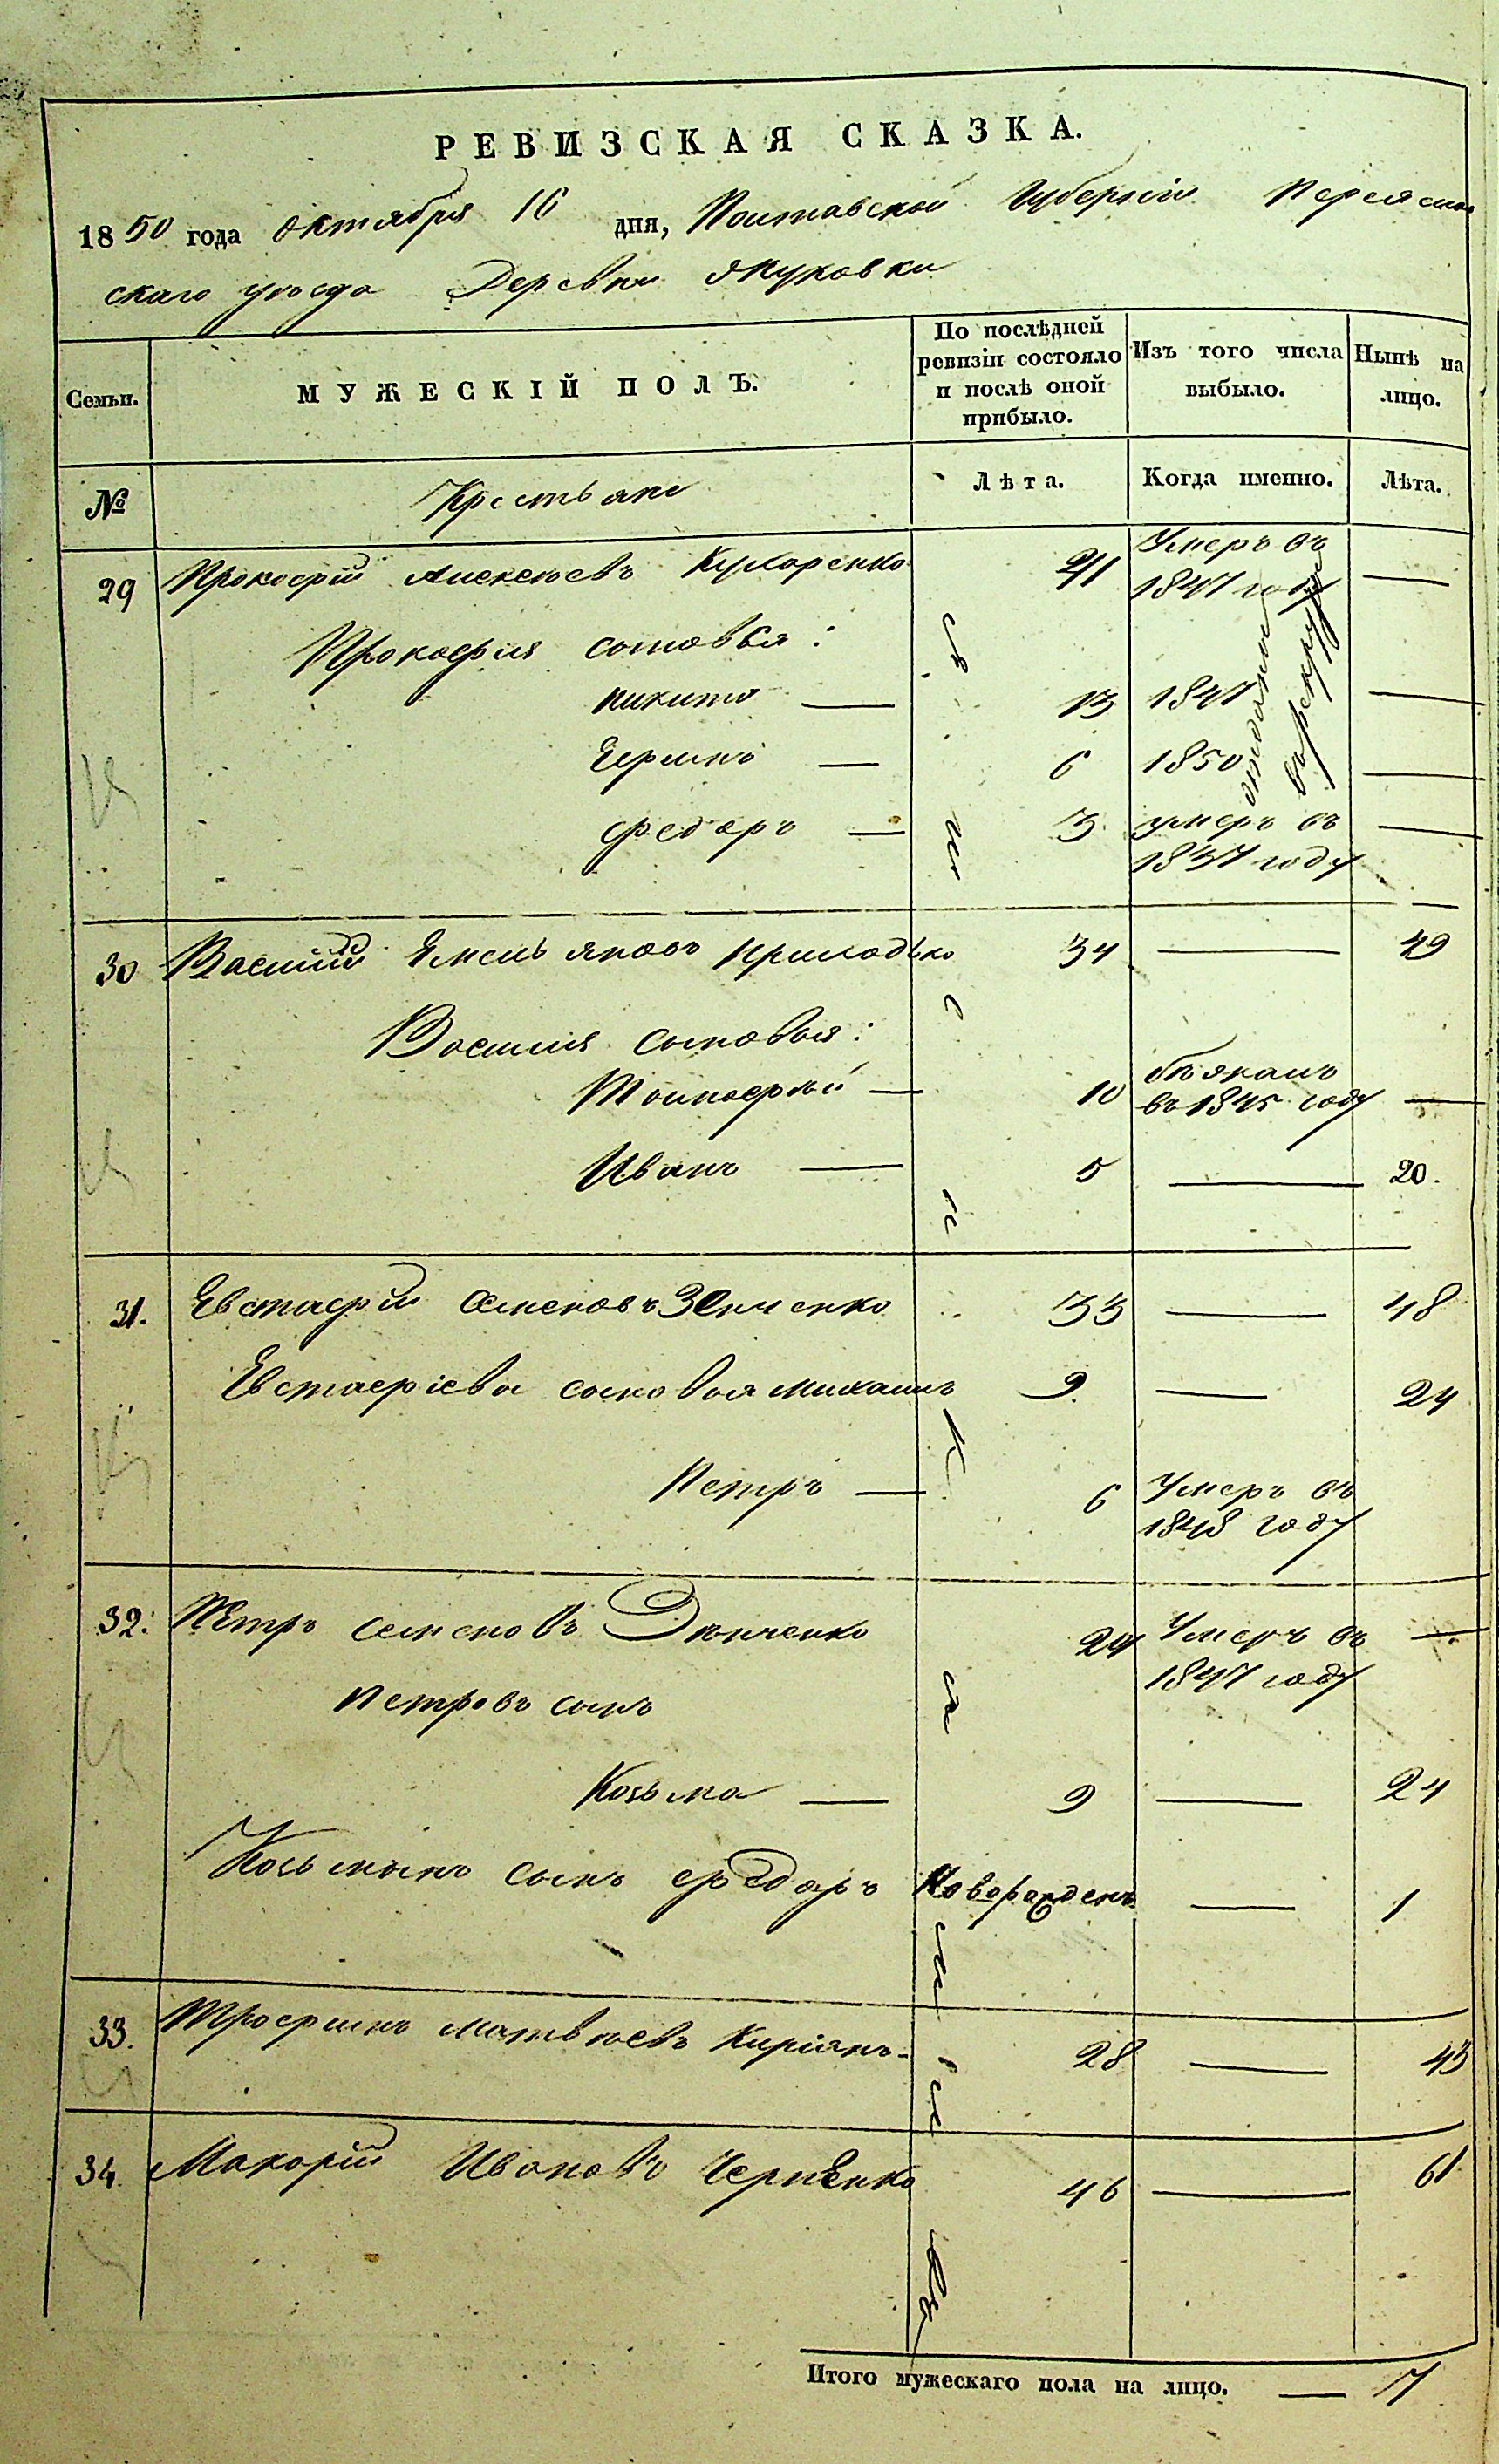 РЕВИЗСКАЯ СКАЗКА.
1850 года октября 16 дня, Полтавской Губерніи Переяслав
скаго уѣзда Деревни Якуховки
Семьи.
МУЖЕСКІЙ ПОЛЪ.
По послѣдней ревизіи состояло и послѣ оной прибыло.
Изъ того числа выбыло.
Нынѣ на лицо.
№ Крестьяне Лѣта. Когда именно. Лѣта.
29 Прокофій Алексѣевъ Кухаренко 41 Умеръ въ 1847 году —
Прокофія сыновья:
Никита — 13 1847 отданы въ рекруты —
Герминъ — 6 1850 —
Федоръ — 3 умеръ въ 1837 году —
30 Василій Емельяновъ Приходько 34 — 49
Василія сыновья:
Тимофей — 10 бѣжалъ въ 1845 году —
Иванъ — 5 — 20.
31. Евстафій Семеновъ Зенченко 33 — 48
Евстафіевы сыновья Михаилъ 9. — 24
Петръ — 6 Умеръ въ 1848 году
32. Петръ Семеновъ Зѣнченко 24 Умеръ въ 1847 году —
Петровъ сынъ
Козьма — 9 — 24
Козьминъ сынъ Федоръ Новорожденъ — 1
33. Трофимъ Матвѣевъ Кирiянъ 28 — 43
34. Макарій Ивановъ Черненко 46 — 61
Итого мужескаго пола на лицо. — 7